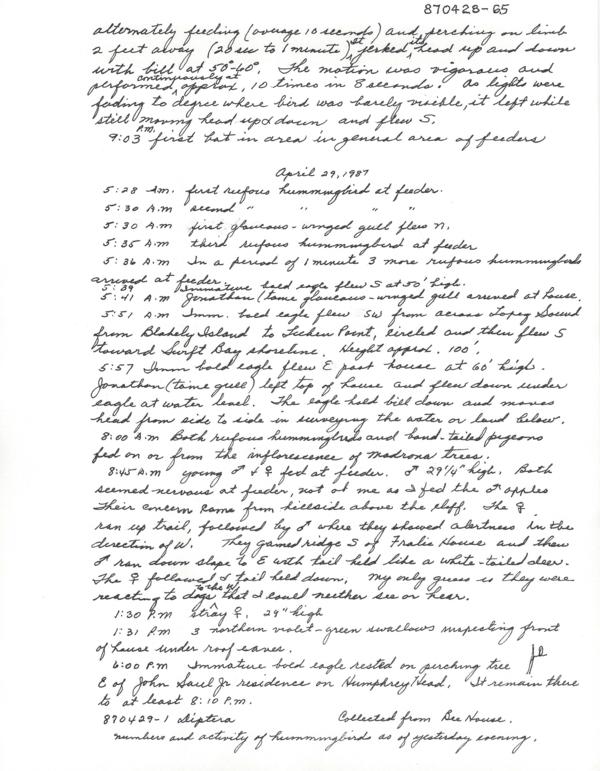 870428-65
alternately feeding (average 10 seconds) and perching on limb
2 feet away (20 sec to 1 minute), it jerked its head up and down
with bill at 50°-60°. The motion was vigorous and
performed continuously at approx. 10 times in 8 seconds. As lights were
fading to degree where bird was barely visible, it left while
still moving head up & down and flew S.
9:03 P.M. first bat in area in general area of feeders
April 29, 1987
5:28 Am. first rufous hummingbird at feeder.
5:30 A.M second " " " "
5:30 A.M first glaucous-winged gull flew N.
5:35 A.M third rufous hummingbird at feeder
5:36 A.M In a period of 1 minute 3 more rufous hummingbirds
arrived at feeder.
5:39 Immature bald eagle flew S at 50' high.
5:41 A.M Jonathan (tame glaucous-winged gull arrived at house.
5:51 A.M Imm. bald eagle flew SW from across Lopez Sound
from Blakely Island to Lichen Point, circled and then flew S
toward Swift Bay shoreline. Height approx. 100'.
5:57 Imm bald eagle flew E past house at 60' high.
Jonathan (tame gull) left top of house and flew down under
eagle at water level. The eagle held bill down and moves
head from side to side in surveying the water or land below.
8:00 A.m Both rufous hummingbirds and band-tailed pigeons
fed on or from the inflorescence of madrona trees.
8:45 A.m young ♂ + ♀ fed at feeder. ♂ 29 1/4" high. Both
seemed nervous at feeder, not at me as I fed the ♂ apples
Their concern came from hillside above the cliff. The ♀
ran up trail, followed by ♂ where they showed alertness in the
direction of W. They gained ridge S of Fralie House and then
♂ ran down slope to E with tail held like a white-tailed deer.
The ♀ followed & tail held down. My only guess is they were
reacting to dogs to the W that I could neither see or hear.
1:30 P.M stray ♀. 29" high
1:31 P.m 3 northern violet-green swallows inspecting front
of house under roof eaves.
6:00 P.M Immature bald eagle rested on perching tree
E of John Saul Jr residence on Humphrey Head. It remain there
to at least 8:10 P.M.
870429-1 Diptera Collected from Bee House.
numbers and activity of hummingbird as of yesterday evening.